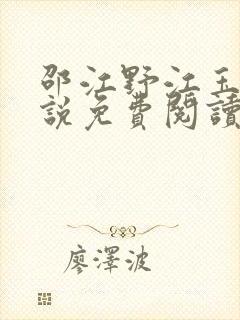 邵江野江玉
說免費閱讀
廖澤波